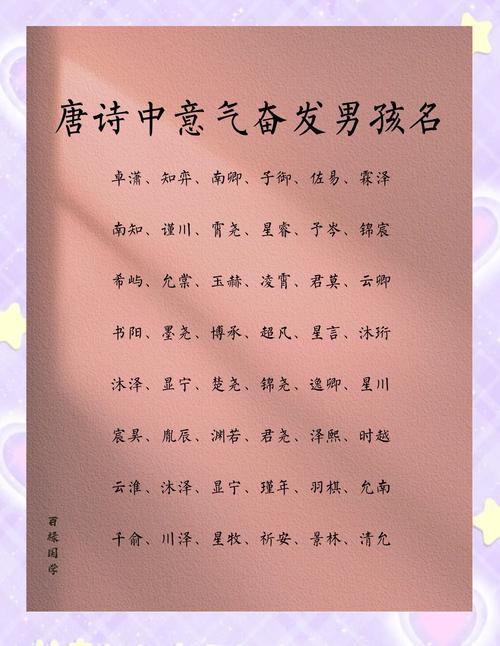 唐诗中意气奋发男孩名
卓潇、知弈、南卿、子御、佐易、霖泽
南知、谨川、霄尧、星睿、予岑、锦宸
希屿、允棠、玉赫、凌霄、君莫、云卿
书阳、墨尧、博承、超凡、星言、沐珩
沐泽、显宁、楚尧、锦尧、逸卿、星川
宸昊、胤辰、渊若、君尧、泽熙、时越
云淮、沐泽、显宁、瑾年、羽棋、允南
千俞、川泽、星牧、祈安、景林、清允
百缘国学